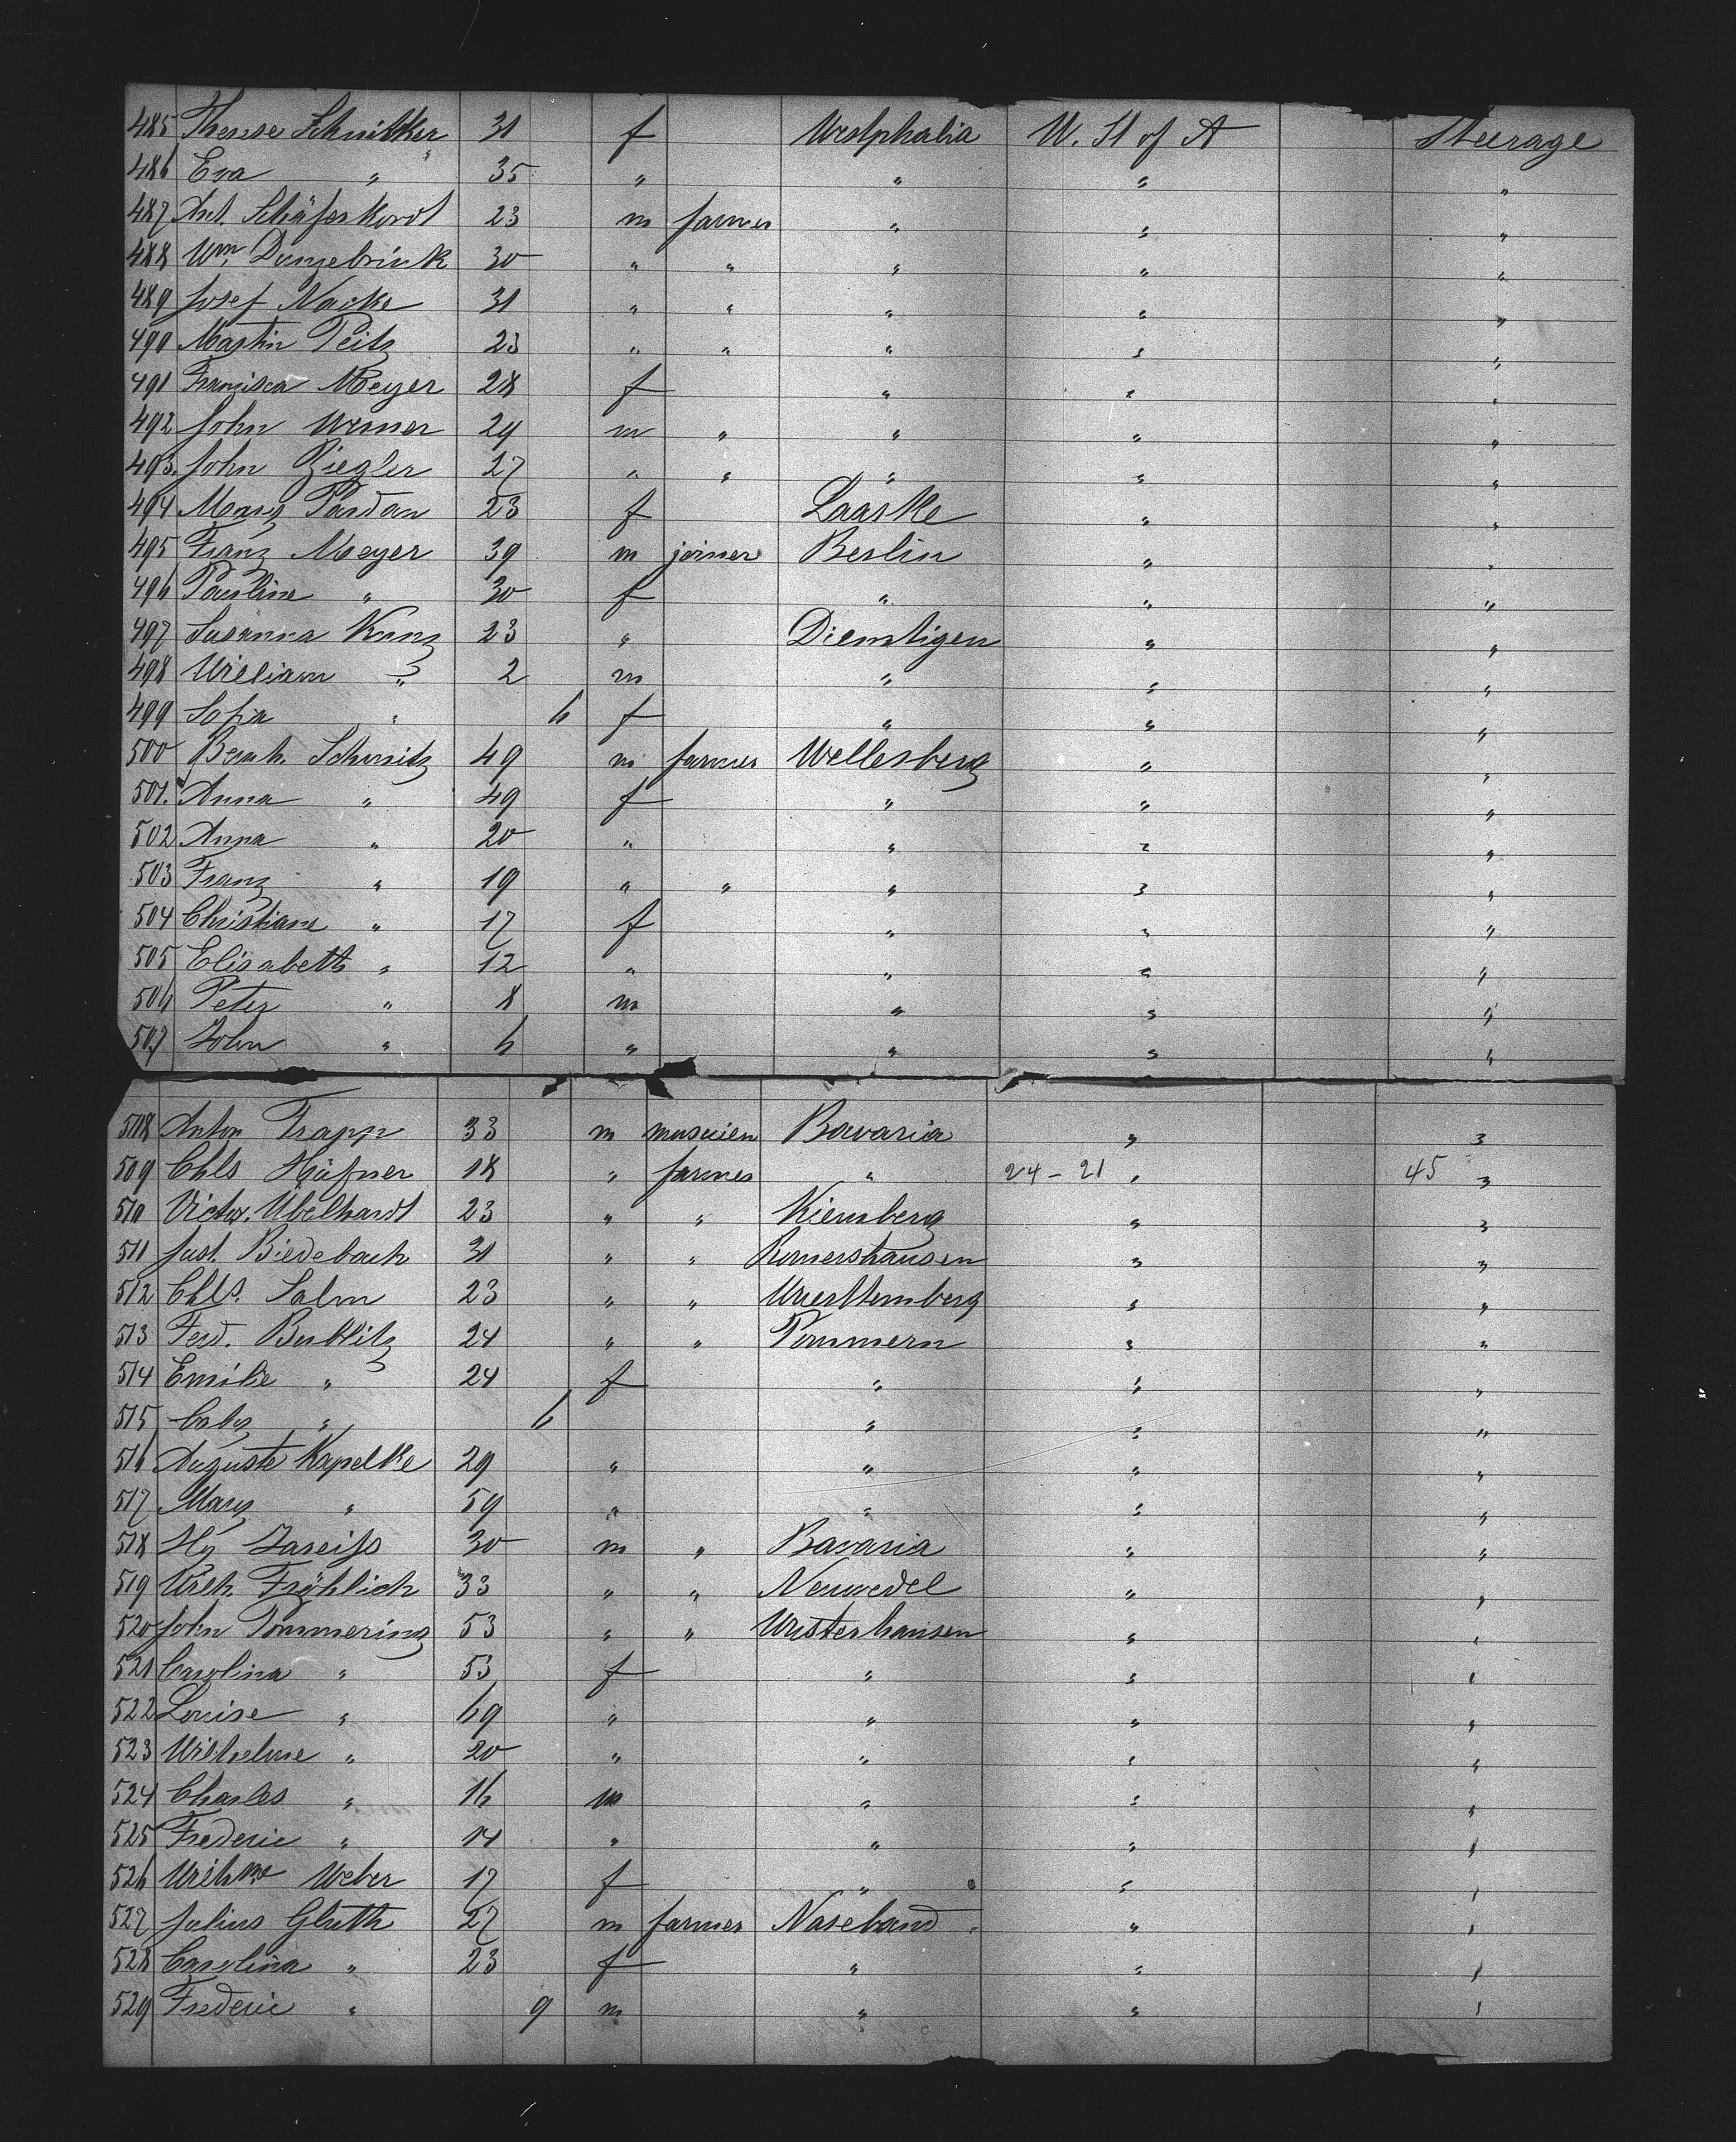 485 Therese Schnittker 31 f Westphalia U. St of A Steerage
486 Eva " 35 " " " "
487 Ant. Schäferkordt 23 m farmer " " "
488 Wm Dunzebrink 30 " " " " "
489 Josef Nacke 31 " " " " "
490 Martin Peitz 23 " " " " "
491 Francisca Meyer 28 f " " "
492 John Werner 29 m " " " "
493. John Ziegler 27 " " " " "
494 Marg Pardau 23 f Laaske " "
495 Franz Meyer 39 m joiner Berlin " "
496 Pauline " 30 f " " "
497 Susanna Kunz 23 " Diemtigen " "
498 William " 2 m " " "
499 Sofia " 6 f " " "
500 Bernh. Schmitz 49 m farmer Wellesberg " "
501. Anna " 49 f " " "
502 Anna " 20 " " " "
503 Franz " 19 " " " " "
504 Christiane " 17 f " " "
505 Elisabeth " 12 " " " "
506 Peter " 8 m " " "
507 John " 6 " " " "
508 Anton Trapp 33 m musicien Bavaria " "
509 Chls Häfner 18 " farmer " 24-21 " 45 "
510 Victor. Ubelhardt 23 " " Kiemberg " "
511 Just. Biedebach 31 " " Romershausen " "
512 Chls. Salm 23 " " Wuerttemberg " "
513 Ferd. Bublitz 24 " " Pommern " "
514 Emilie " 24 f " " "
515 " 6 " " "
516 Auguste Kapelke 29 " " " "
517 Mary " 59 " " " "
518 Hy Jareiss 30 m " Bavaria " "
519 Wilh. Fröhlich 33 " " Neuwedel " "
520 John Pommering 53 " " Wusterhausen " "
521 Carolina " 53 f " " "
522 Louise " 69 " " " "
523 Wilhelme " 20 " " " "
524 Charles " 16 m " " "
525 Frederic " 14 " " " "
526 Wilhme Weber 17 f " " "
527 Julius Gluth 27 m farmer Naseband " "
528 Carolina " 23 f " " "
529 Frederic " 9 m " " "